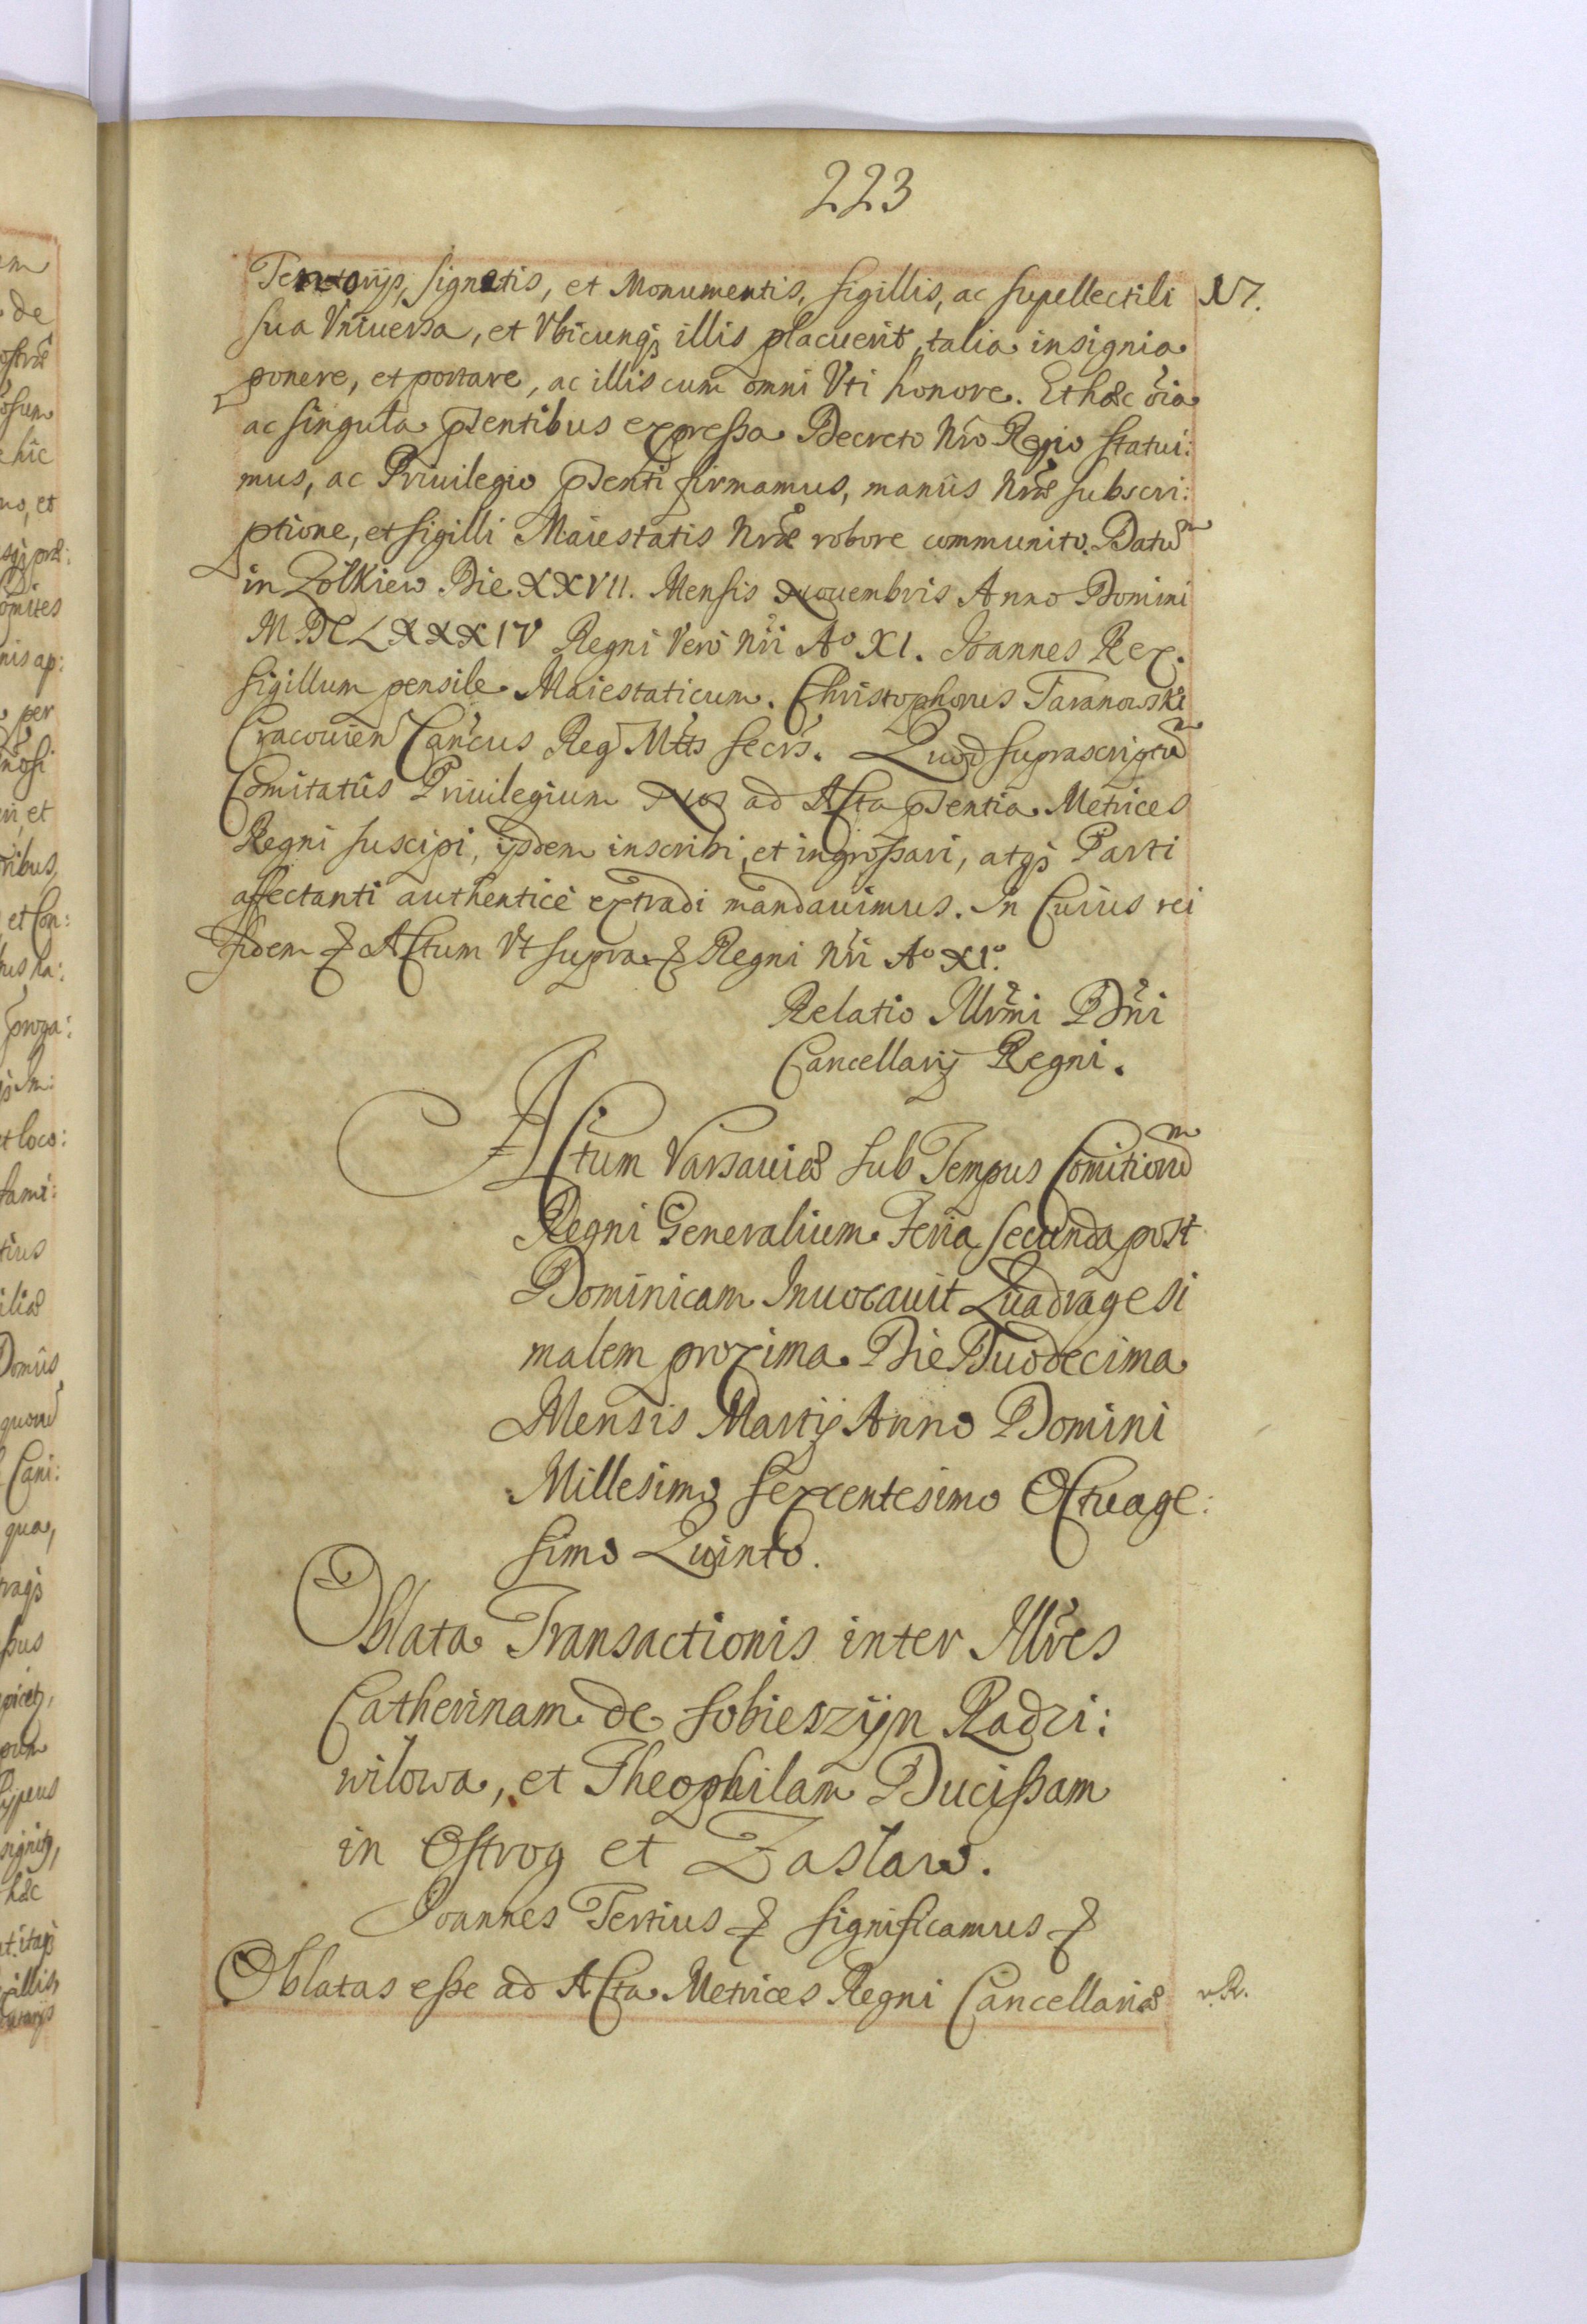 223
Tentorijs, signetis, et Monumentis, sigillis, ac supellectili
sua Vniuersa, et Vbicunq3 illis placuerit, talia insignia
ponere, et portare, ac illis cum omni Vti honore. Et hæc oia
ac singula pꝛentibus expressa Decreto Nro Regio statui:
mus, ac Priuilegio pꝛenti firmamus, manûs Nræ subscri:
ptione, et sigilli Maiestatis Nræ robore communito. Datũm
in Zolkiew Die XXVII. Mensis Nouembris Anno Domini
MDCLXXXIV Regni Verò Nri Aº XI. Ioannes Rex.
Sigillum pensile Maiestaticum. Christophorus Taranowski
Cracouien Cancus Reg Mttis Secrs. Quod suprascriptũm
Comitatûs Priuilegium Nos ad Acta pꝛentia Metrices
Regni suscipi, ijsdem inscribi, et ingrossari, atq3 Parti
affectanti authenticè extradi mandauimus. In Cuius rei
fidem & Actum Vt supra & Regni Nri Aº XIº.
Relatio Illrmi Dni
Cancellarij Regni.
Actum Varsauiæ sub Tempus Comitiorũm
Regni Generalium Feria secunda post
Dominicam Inuocauit Quadragesi
malem proxima Die Duodecima
Mensis Martij Anno Domini
Millesimo sexcentesimo Octuage:
simo Quinto.
Oblata Transactionis inter Illres
Catherinam de Sobieszijn Radzi:
wilowa, et Theophilam Ducissam
in Ostrog et Zaslaw.
Ioannes Tertius & significamus &
Oblatas esse ad Acta Metrices Regni Cancellariæ